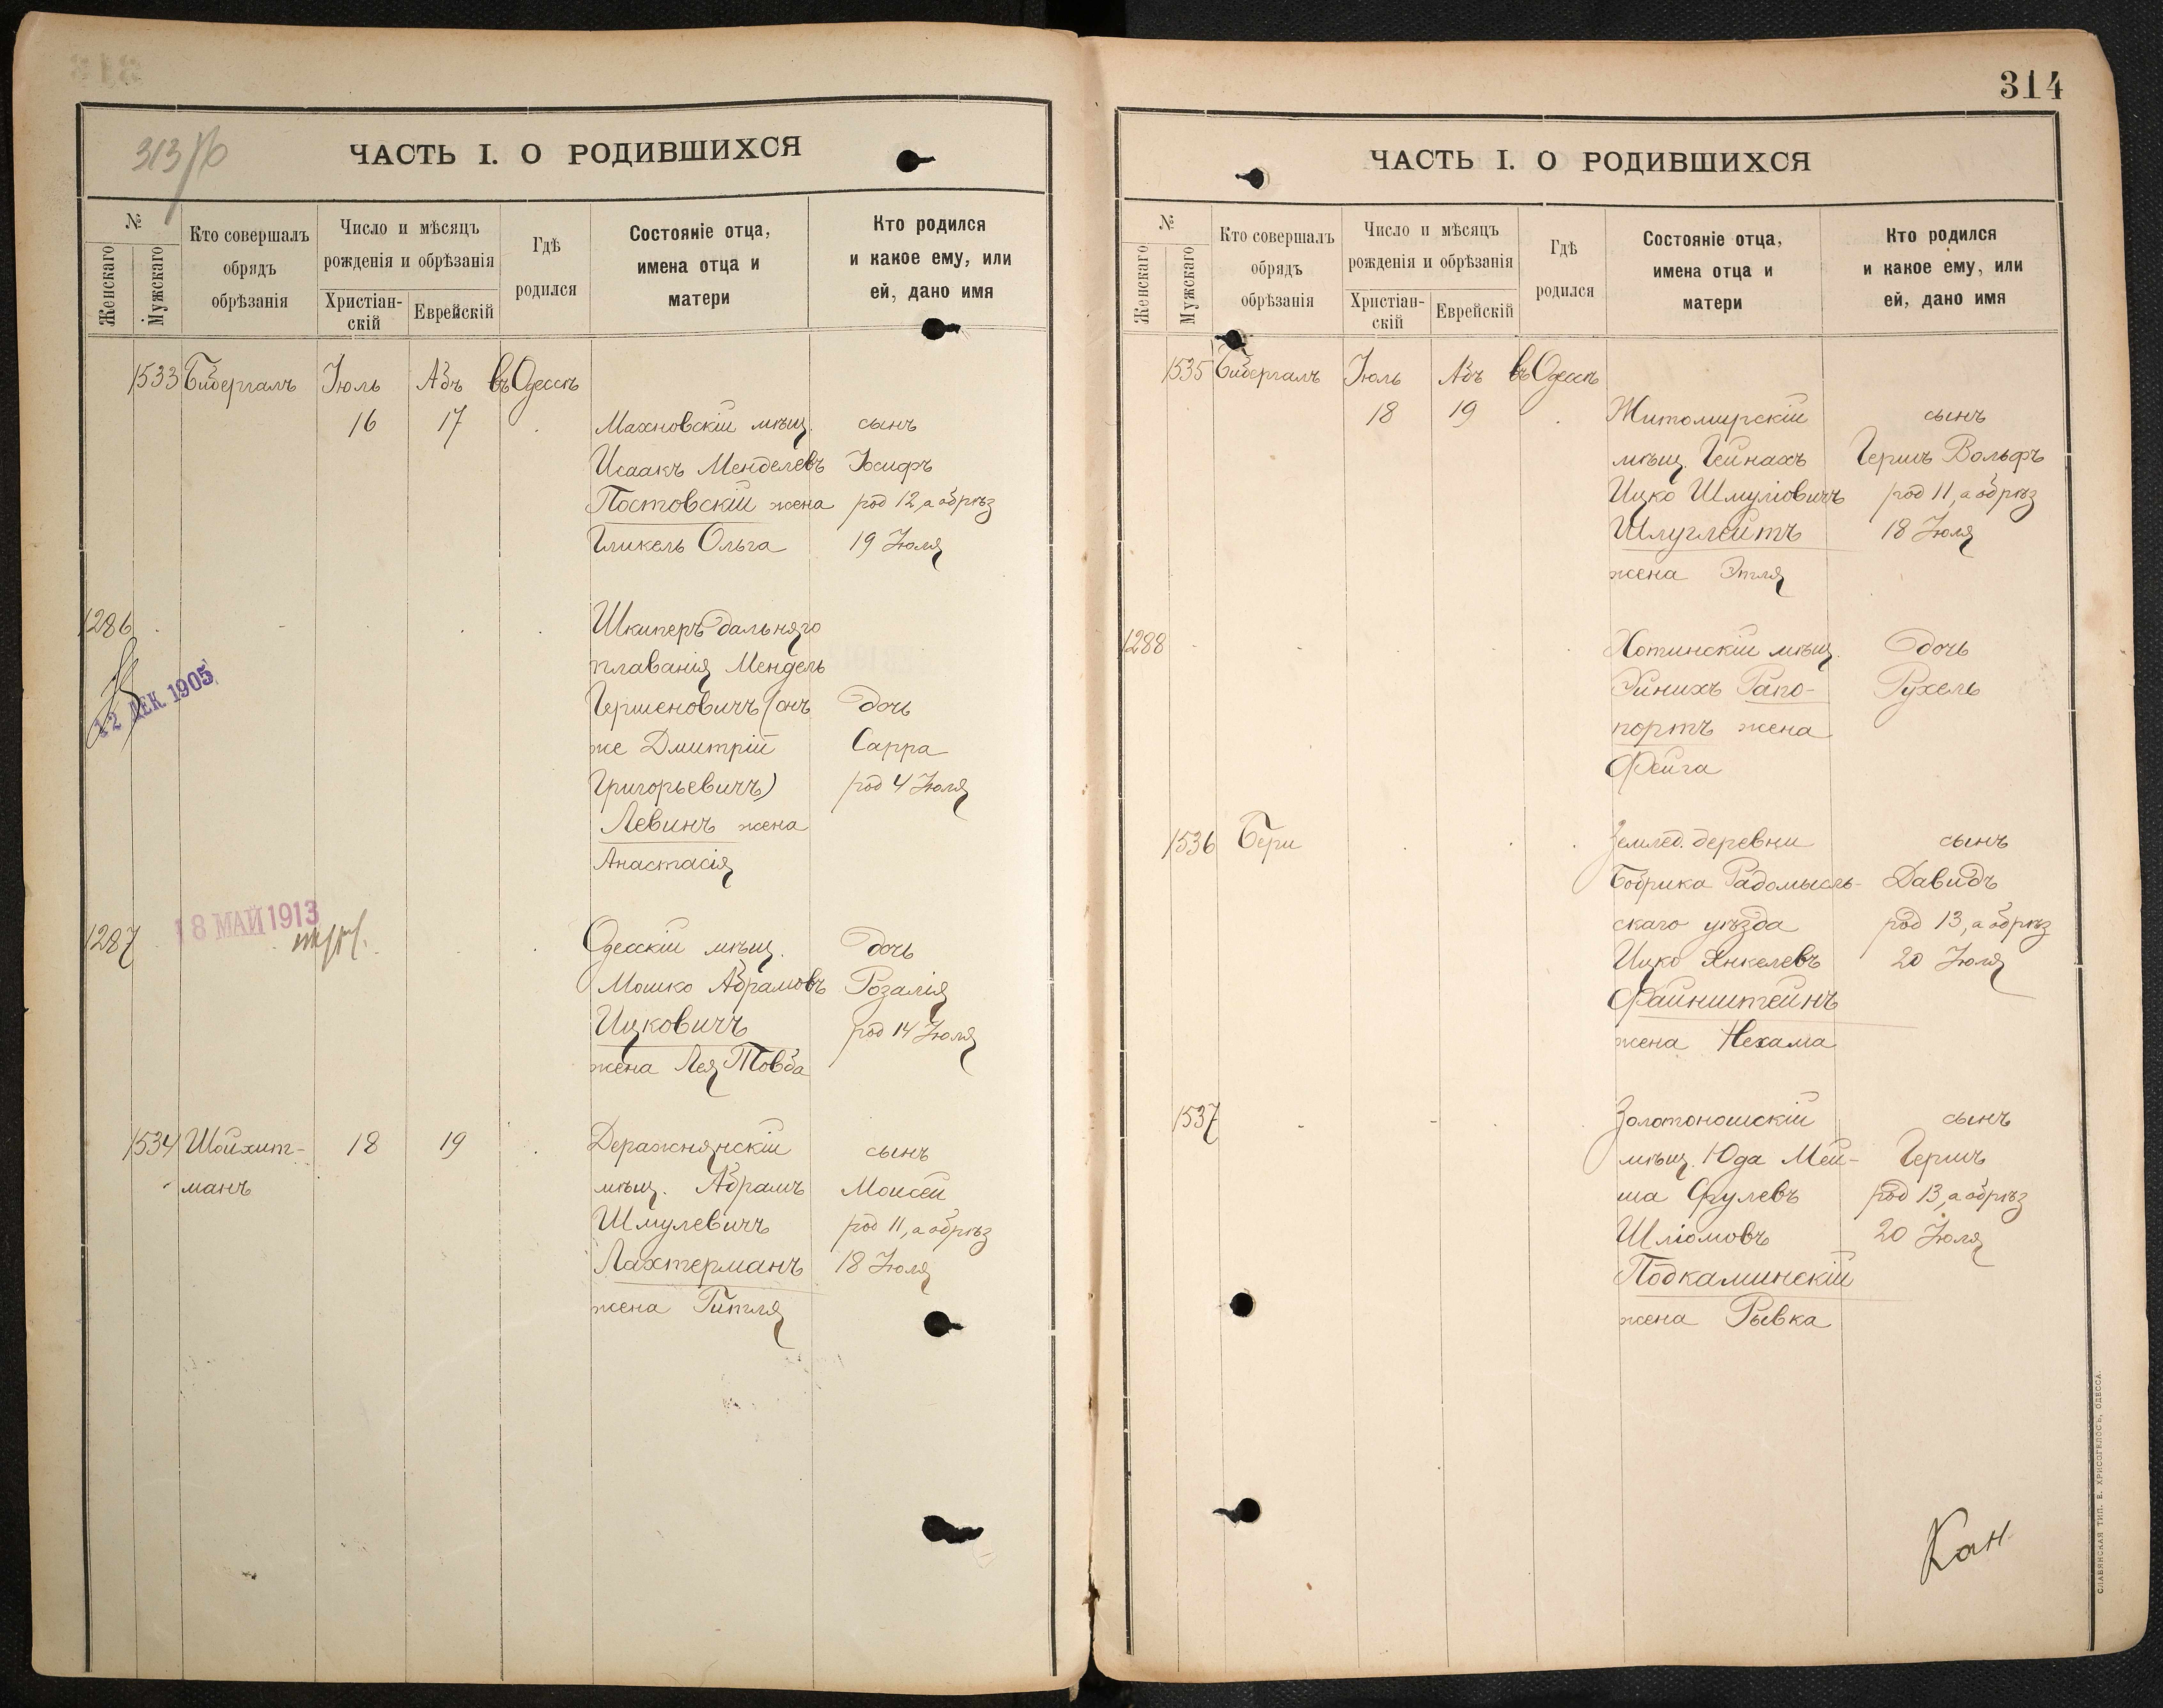 313/б
ЧАСТЬ I. О РОДИВШИХСЯ
№
Женскаго
Мужскаго
Кто совершалъ
обрядъ
обрѣзанія
Число и мѣсяцъ
рожденія и обрѣзанія
Христіан-
скій
Еврейскій
Гдѣ
родился
Состояніе отца,
имена отца и
матери
Кто родился
и какое ему, или
ей, дано имя
1533 Бибергалъ Іюль Абъ въ Одессѣ
16 17 Махновскій мѣщ. сынъ
Исаакъ Менделевъ Іосифъ
Постовскій жена род 12, а обрѣз
Гликель Ольга 19 Іюля
1286 Шкиперъ дальняго
плаванія Мендель
Гершеновичъ (онъ дочь
же Дмитрій Сарра
Григорьевичъ) род 4 Іюля
Левинъ жена
Анастасія
12 ДЕК. 1905
18 МАЙ 1913
1287 Одесскій мѣщ. дочь
Мошко Абрамовъ Розалія
Ицковичъ род 14 Іюля
жена Лея Товба
1534 Шойхит- 18 19 Деражнянскій сынъ
манъ мѣщ. Абрамъ Моисей
Шмулевичъ род 11, а обрѣз
Лахтерманъ 18 Іюля
жена Гитля
314
ЧАСТЬ I. О РОДИВШИХСЯ
№
Женскаго
Мужскаго
Кто совершалъ
обрядъ
обрѣзанія
Число и мѣсяцъ
рожденія и обрѣзанія
Христіан-
скій
Еврейскій
Гдѣ
родился
Состояніе отца,
имена отца и
матери
Кто родился
и какое ему, или
ей, дано имя
1535 Бибергалъ Іюль Абъ въ Одессѣ
18 19 Житомирскій сынъ
мѣщ. Гейнахъ Гершъ Вольфъ
Ицко Шмуліовичъ род 11, а обрѣз
Шлуглейтъ 18 Іюля
жена Этля
1288 Хотинскій мѣщ. дочь
Эйнихъ Рапо- Рухель
портъ жена
Фейга
1536 Бери Землед. деревни сынъ
Бобрика Радомысль- Давидъ
скаго уѣзда род 13, а обрѣз
Ицко Янкелевъ 20 Іюля
Файнштейнъ
жена Нехама
1537 Золотоношскій сынъ
мѣщ. Юда Мей- Гершъ
ша Сруlевъ род 13, а обрѣз
Шліомовъ 20 Іюля
Подкаминскій
жена Рывка
Кан
СЛАВЯНСКАЯ ТИП. Е. ХРИСОГЕЛОСЪ, ОДЕССА.